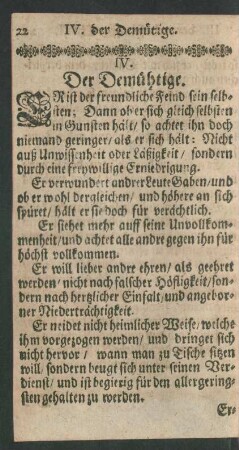 22 IV. der Demütige.
IV.
Der Demühtige.
ER ist der freundliche Feind sein selb-
sten; Dann ob er sich gleich selbsten
in Gunsten hält/ so achtet ihn doch
niemand geringer/ als er sich hält: Nicht
auß Unwissenheit oder Läßigkeit/ sondern
durch eine freywillige Erniedrigung.
Er verwundert andrer Leute Gaben/ und
ob er wohl dergleichen/ und höhere an sich
spüret/ hält er sie doch für verächtlich.
Er siehet mehr auff seine Unvollkom-
menheit/ und achtet alle andre gegen ihn für
höchst vollkommen.
Er will lieber andre ehren/ als geehret
werden/ nicht nach falscher Höfligkeit/ son-
dern nach hertzlicher Einfalt/ und angebor-
ner Niederträchtigkeit.
Er neidet nicht heimlicher Weise/ welche
ihm vorgezogen werden/ und dringet sich
nicht hervor/ wann man zu Tische sitzen
will/ sondern beugt sich unter seinen Ver-
dienst/ und ist begierig für den allergering-
sten gehalten zu werden.
Er-